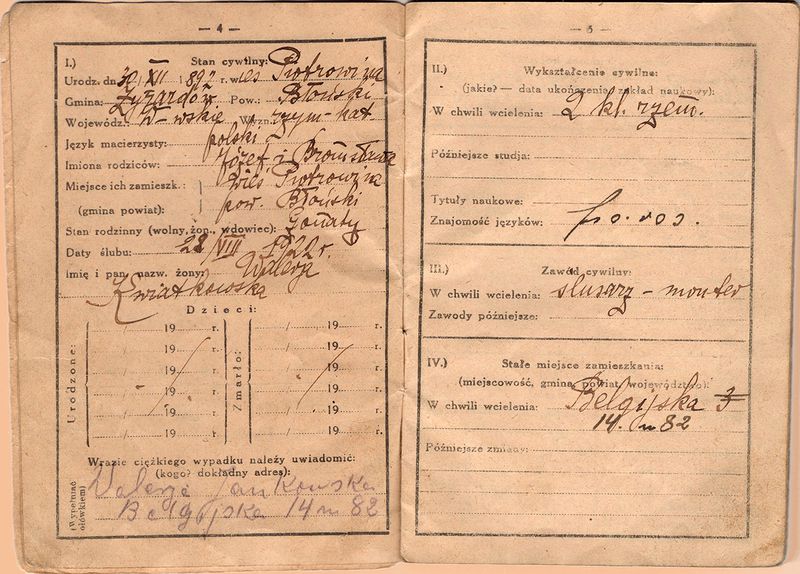 — 4 —
I.) Stan cywilny:
Urodz. dn. 30/XII 1892 r. wieś Piotrowina
Gmina: Żyrardów Pow.: Błoński
Wojewódz.: W-wskie Wyzn.: rzym-kat.
Język macierzysty: polski
Imiona rodziców: Józef i Bronisława
Miejsce ich zamieszk.: wieś Piotrowina
(gmina powiat): pow. Błoński
Stan rodzinny (wolny, żon., wdowiec): Żonaty
Daty ślubu: 28/VIII 1922 r.
Imię i pan. nazw. żony: Walerja
Kwiatkowska
Dzieci:
Urodzone:
/ 19 r.
/ 19 r.
/ 19 r.
/ 19 r.
/ 19 r.
/ 19 r.
Zmarło:
/ 19 r.
/ 19 r.
/ 19 r.
/ 19 r.
/ 19 r.
/ 19 r.
W razie ciężkiego wypadku należy uwiadomić:
(kogo? dokładny adres):
(Wypełniać ołówkiem)
Walerje Jankowska
Belgijska 14 m 82
— 5 —
II.) Wykształcenie cywilne:
(jakie? — data ukończenia, zakład naukowy):
W chwili wcielenia: 2 kl. rzem.
Późniejsze studja:
Tytuły naukowe:
Znajomość języków:
III.) Zawód cywilny:
W chwili wcielenia: ślusarz - monter
Zawody późniejsze:
IV.) Stałe miejsce zamieszkania:
(miejscowość, gmina, powiat, województwo):
W chwili wcielenia: Belgijska 3
14. m 82
Późniejsze zmiany: